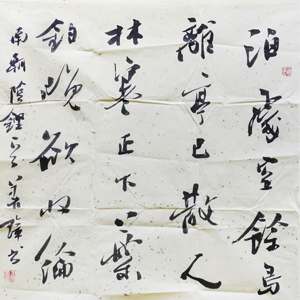 泊處空餘鳥
離亭已散人
林寒正下葉
釣晚欲收綸
南朝陰鏗 書